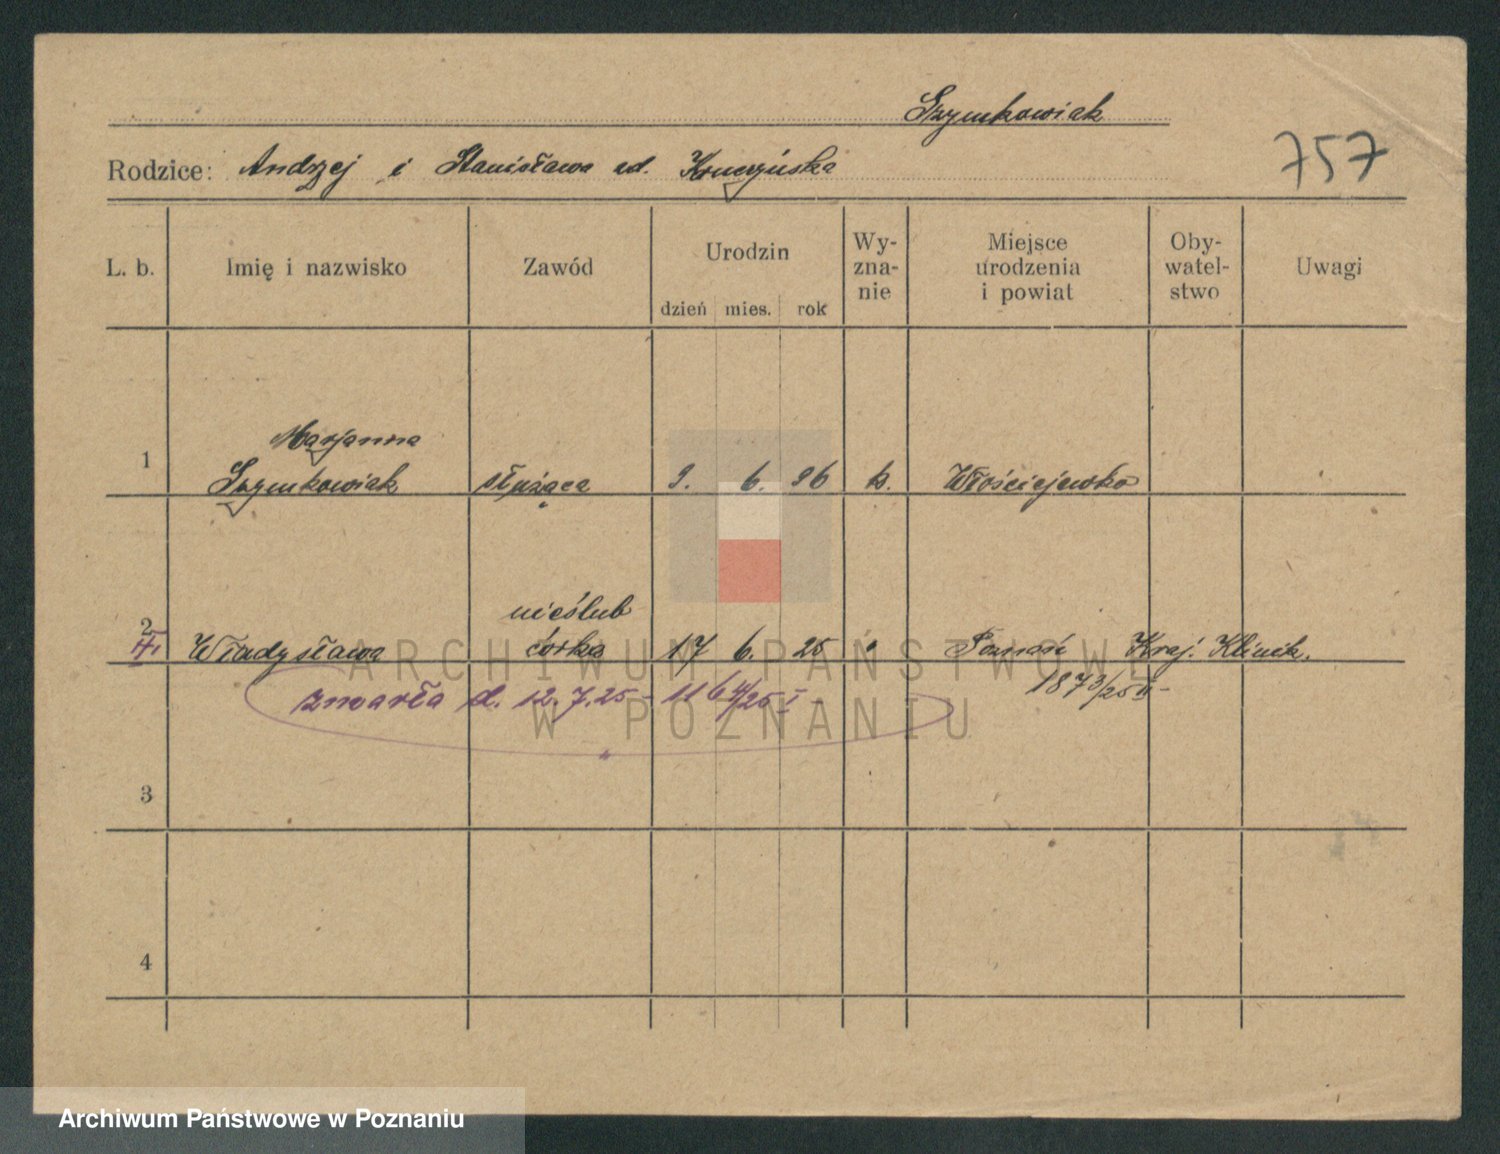 Szymkowiak
757
Rodzice: Andrzej i Stanisława zd.
L. b. Imię i nazwisko Zawód Urodzin dzień mies. rok Wy-zna-nie Miejsce urodzenia i powiat Oby-watel-stwo Uwagi
Marjanna
1 Szymkowiak służąca 9. 6. 96 k. Włościejewko
nieślub
2 Władysława córka 17 6. 25 " Poznań Kraj. Klinik.
zmarła d. 12.7.25 - 1164/25 I - 1873/25 II -
3
4
ARCHIWUM PAŃSTWOWE
W POZNANIU
Archiwum Państwowe w Poznaniu